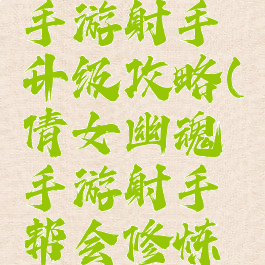 手游射手
升级攻略(
倩女幽魂
手游射手
帮会修炼